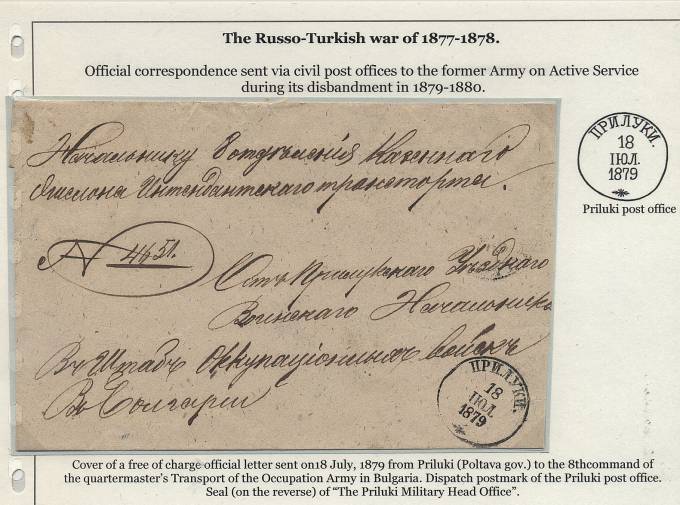 The Russo-Turkish war of 1877-1878.
Official correspondence sent via civil post offices to the former Army on Active Service
during its disbandment in 1879-1880.
Начальнику 8 отдѣленія Казеннаго
Интендантскаго транспорта.
N 4651.
Отъ Прилукскаго Уѣзднаго
Воинскаго Начальника
Въ Штабъ Оккупаціонныхъ войскъ
Въ Болгаріи
ПРИЛУКИ.
18
ІЮЛ.
1879
ПРИЛУКИ.
18
ІЮЛ.
1879
Priluki post office
Cover of a free of charge official letter sent on18 July, 1879 from Priluki (Poltava gov.) to the 8thcommand of
the quartermaster's Transport of the Occupation Army in Bulgaria. Dispatch postmark of the Priluki post office.
Seal (on the reverse) of “The Priluki Military Head Office”.